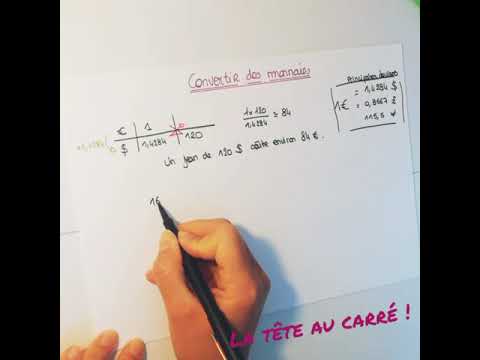 Convertir des monnaies
Principales devises
1€ = 1,4284 $
= 0,8667 £
115,5 ¥
€ | 1 |
$ | 1,4284 | 120
×1,4284
1 × 120
1,4284
≈ 84
Un jean de 120 $ coûte environ 84 €.
16
La tête au carré !